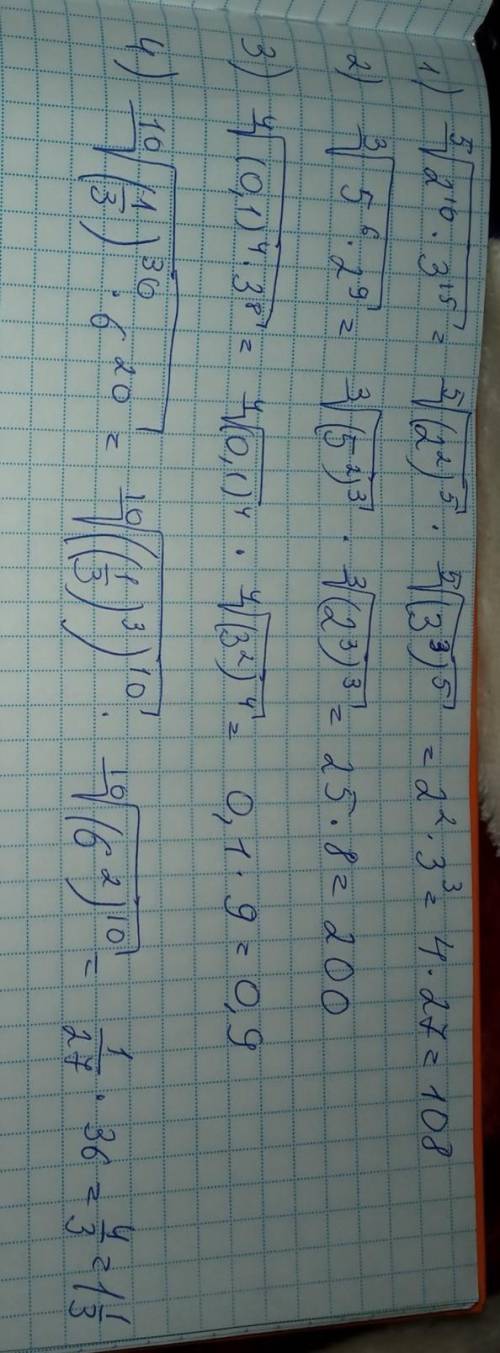 1) ⁵√(2¹⁰ · 3¹⁵) = ⁵√(2²)⁵ · ⁵√(3³)⁵ = 2² · 3³ = 4 · 27 = 108
2) ³√(5⁶ · 2⁹) = ³√(5²)³ · ³√(2³)³ = 25 · 8 = 200
3) ⁴√((0,1)⁴ · 3⁸) = ⁴√(0,1)⁴ · ⁴√(3²)⁴ = 0,1 · 9 = 0,9
4) ¹⁰√((1/3)³⁰ · 6²⁰) = ¹⁰√((1/3)³)¹⁰ · ¹⁰√(6²)¹⁰ = 1/27 · 36 = 4/3 = 1 1/3